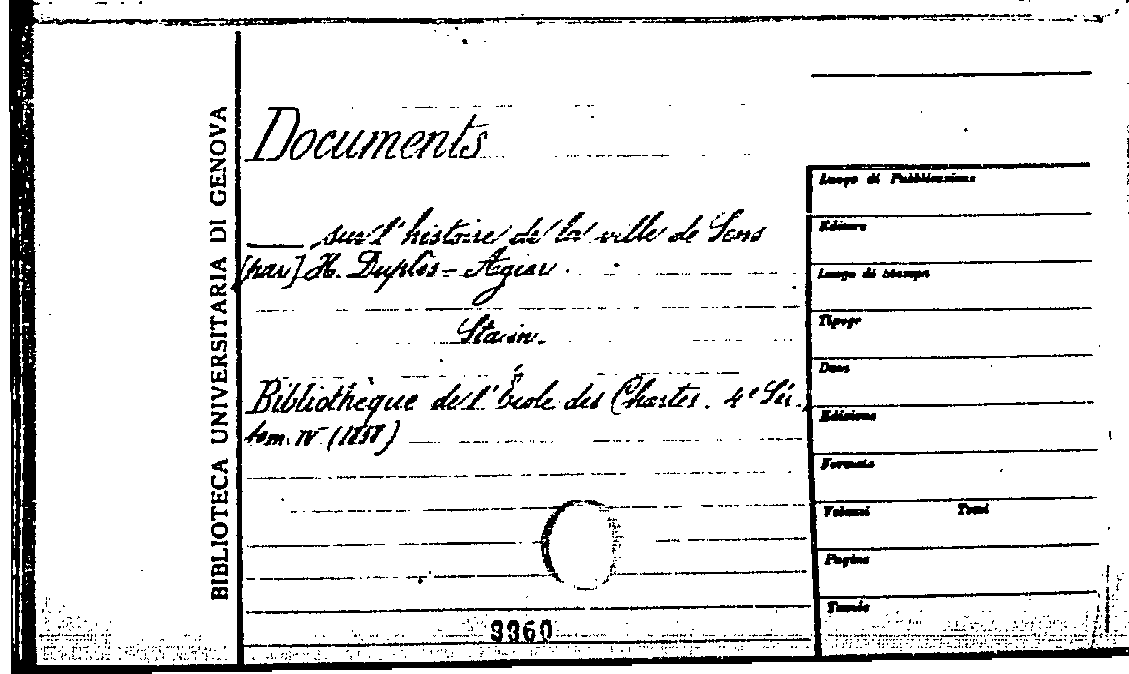 BIBLIOTECA UNIVERSITARIA DI GENOVA
Documents
___ sur l'histoire de la ville de Sens
[par] H. Duplès-Agier.
Sta in.
Bibliothèque de l'École des Chartes. 4e Sér.,
tom. IV (1858)
3360
Luogo di Pubblicazione
Editore
Luogo di Stampa
Tipogr
Data
Edizione
Formato
Volumi Tomi
Pagine
Tavole